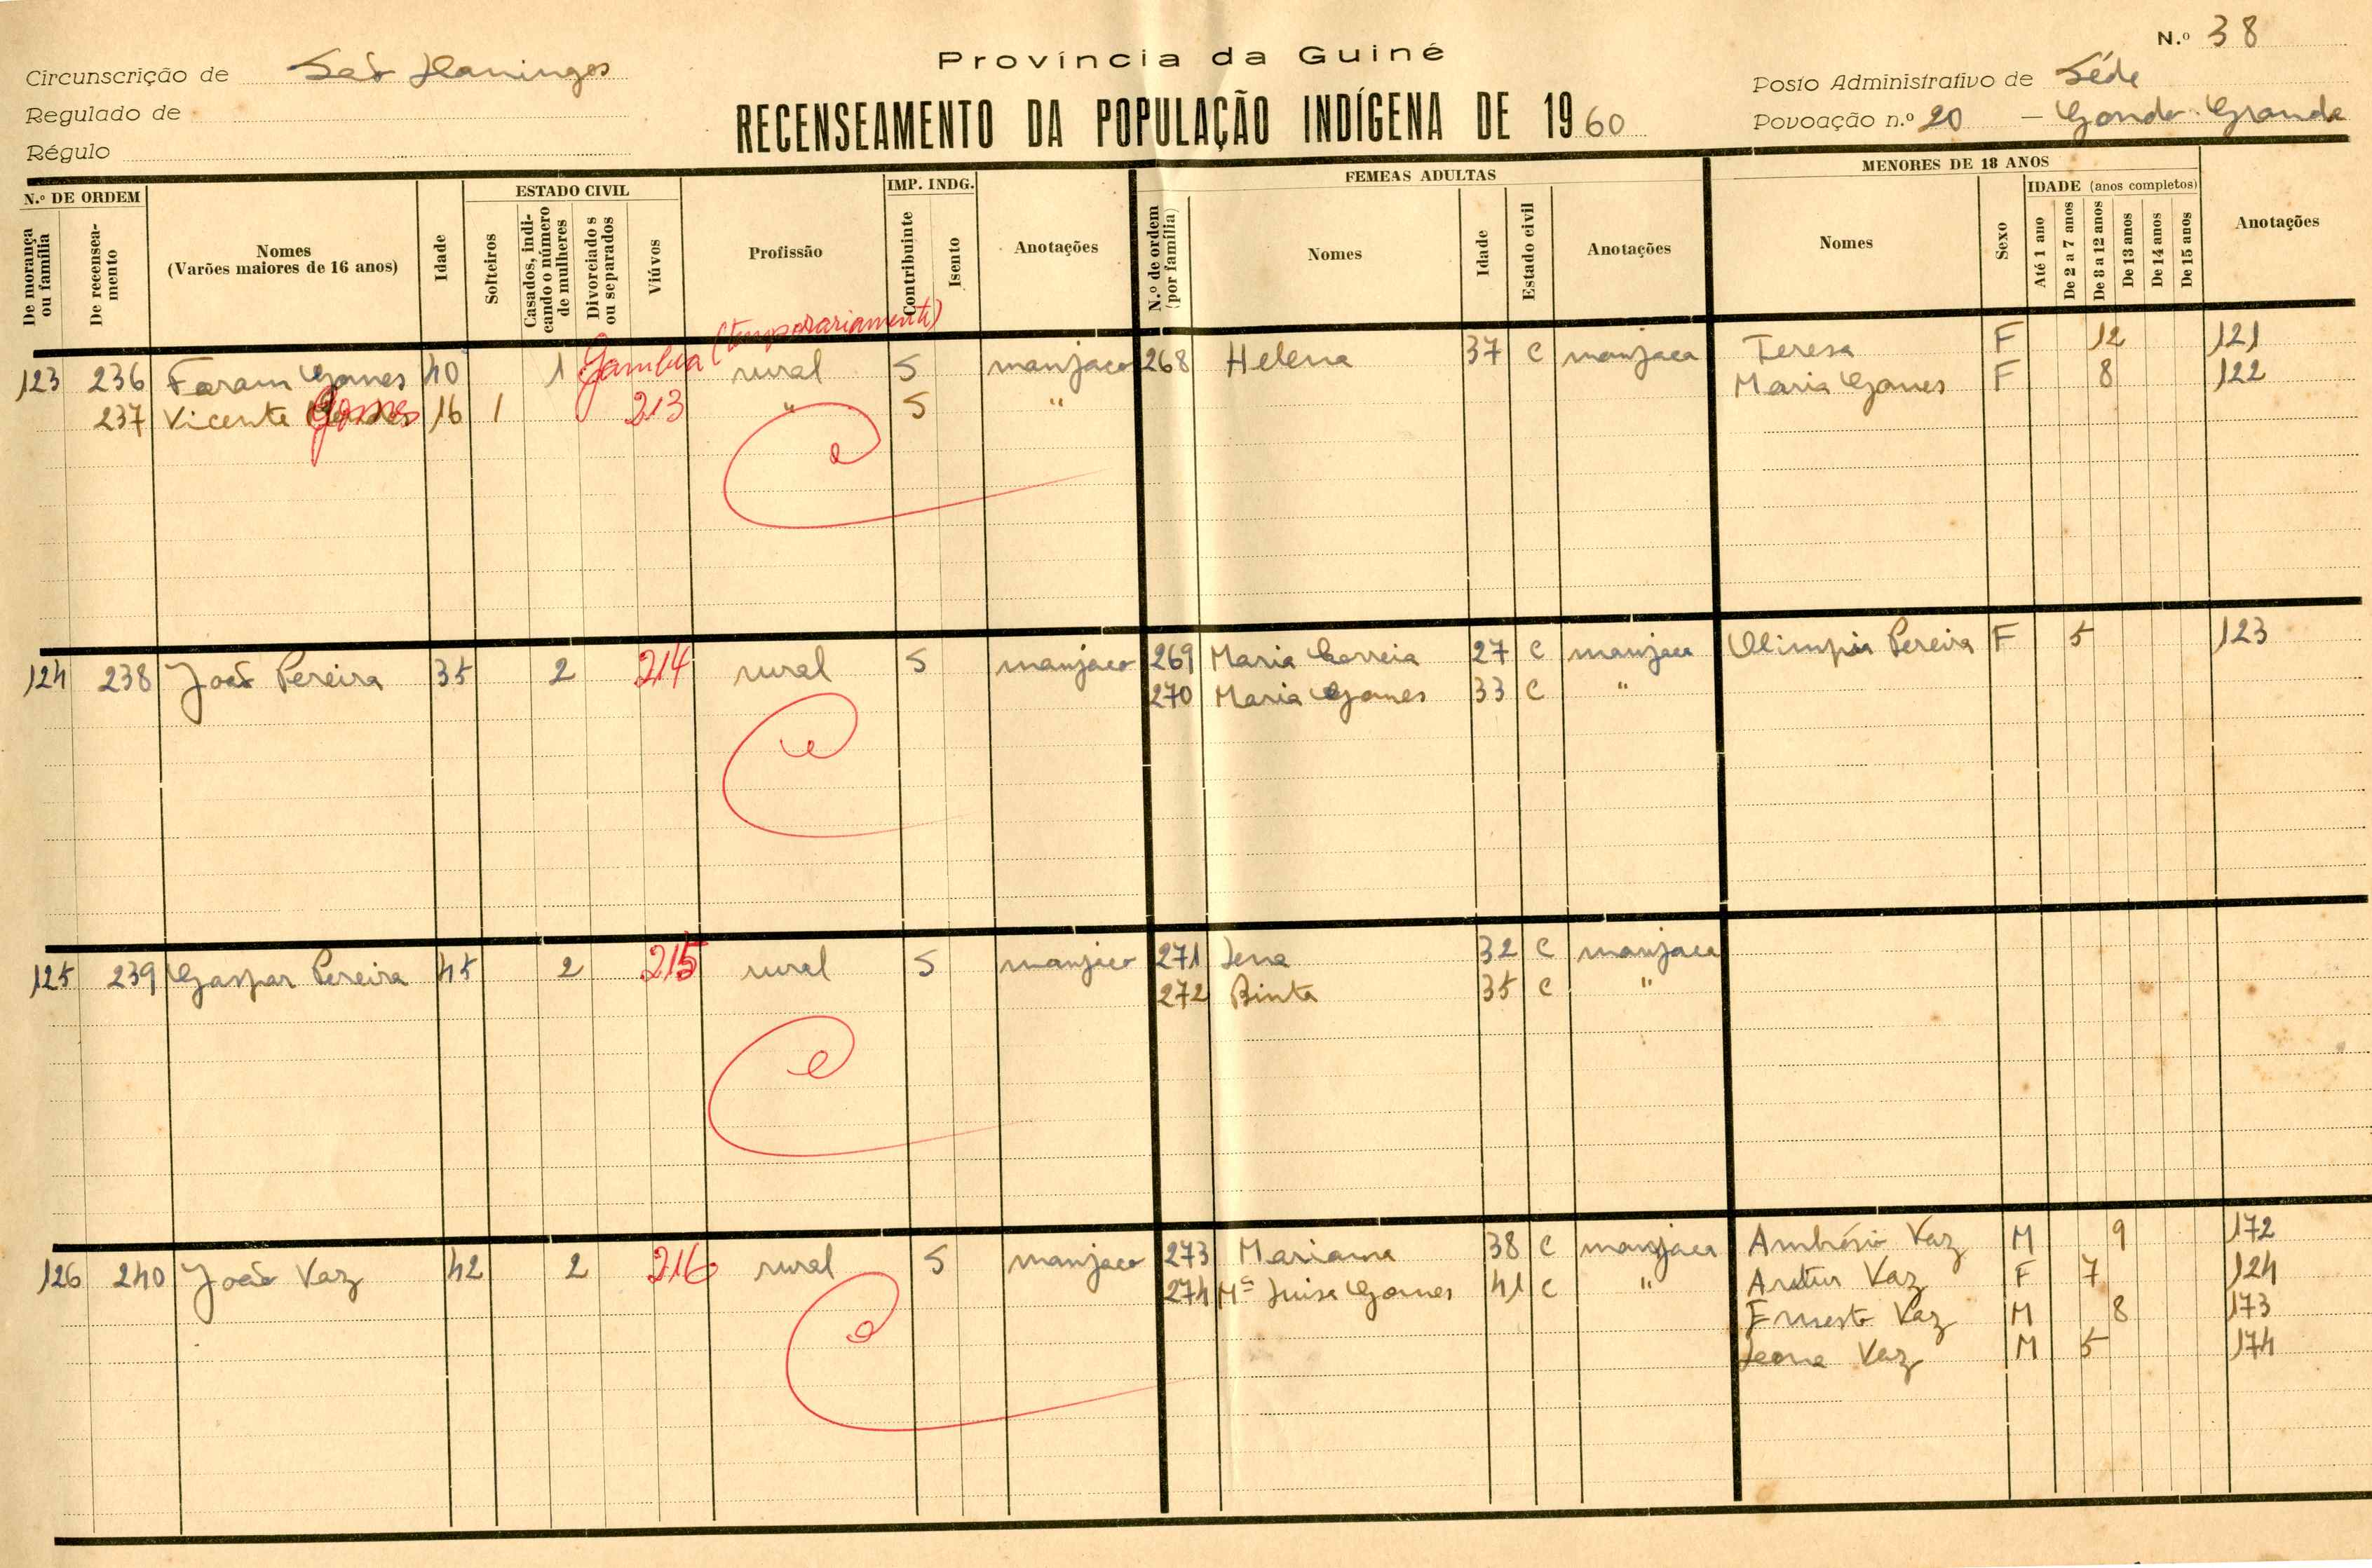 N.º 38
Província da Guiné
Circunscrição de São Domingos
Posto Administrativo de Séde
Regulado de
RECENSEAMENTO DA POPULAÇÃO INDÍGENA DE 1960
Povoação n.º 20 —  Grande
Régulo
N.º DE ORDEM
De morança ou família
De recenseamento
Nomes
(Varões maiores de 16 anos)
Idade
ESTADO CIVIL
Solteiros
Casados, indicando o número de mulheres
Divorciados ou separados
Viúvos
Profissão
IMP. INDG.
Contribuinte
Isento
Anotações
FEMEAS ADULTAS
N.º de ordem (por família)
Nomes
Idade
Estado civil
Anotações
MENORES DE 18 ANOS
Nomes
Sexo
IDADE (anos completos)
Até 1 ano
De 2 a 7 anos
De 8 a 12 anos
De 13 anos
De 14 anos
De 15 anos
Anotações
Gambia (temporariamente)
123 236 Faram Gomes 40 1 rural S manjaco 268 Helena 37 C manjaca Teresa F 12 121
Maria Gomes F 8 122
237 Vicente Gomes 16 1 213 " S "
124 238 João Pereira 35 2 214 rural S manjaco 269 Maria Correia 27 C manjaca Olimpia Pereira F 5 123
270 Maria Gomes 33 C "
125 239 Gaspar Pereira 45 2 215 rural S manjaco 271 32 C manjaca
272 Binta 35 C "
126 240 João Vaz 42 2 216 rural S manjaco 273 Mariama 38 C manjaca Ambrósio Vaz M 9 172
274 Mª Luisa Gomes 41 C " Vaz F 7 124
Ernesto Vaz M 8 173
Vaz M 5 174